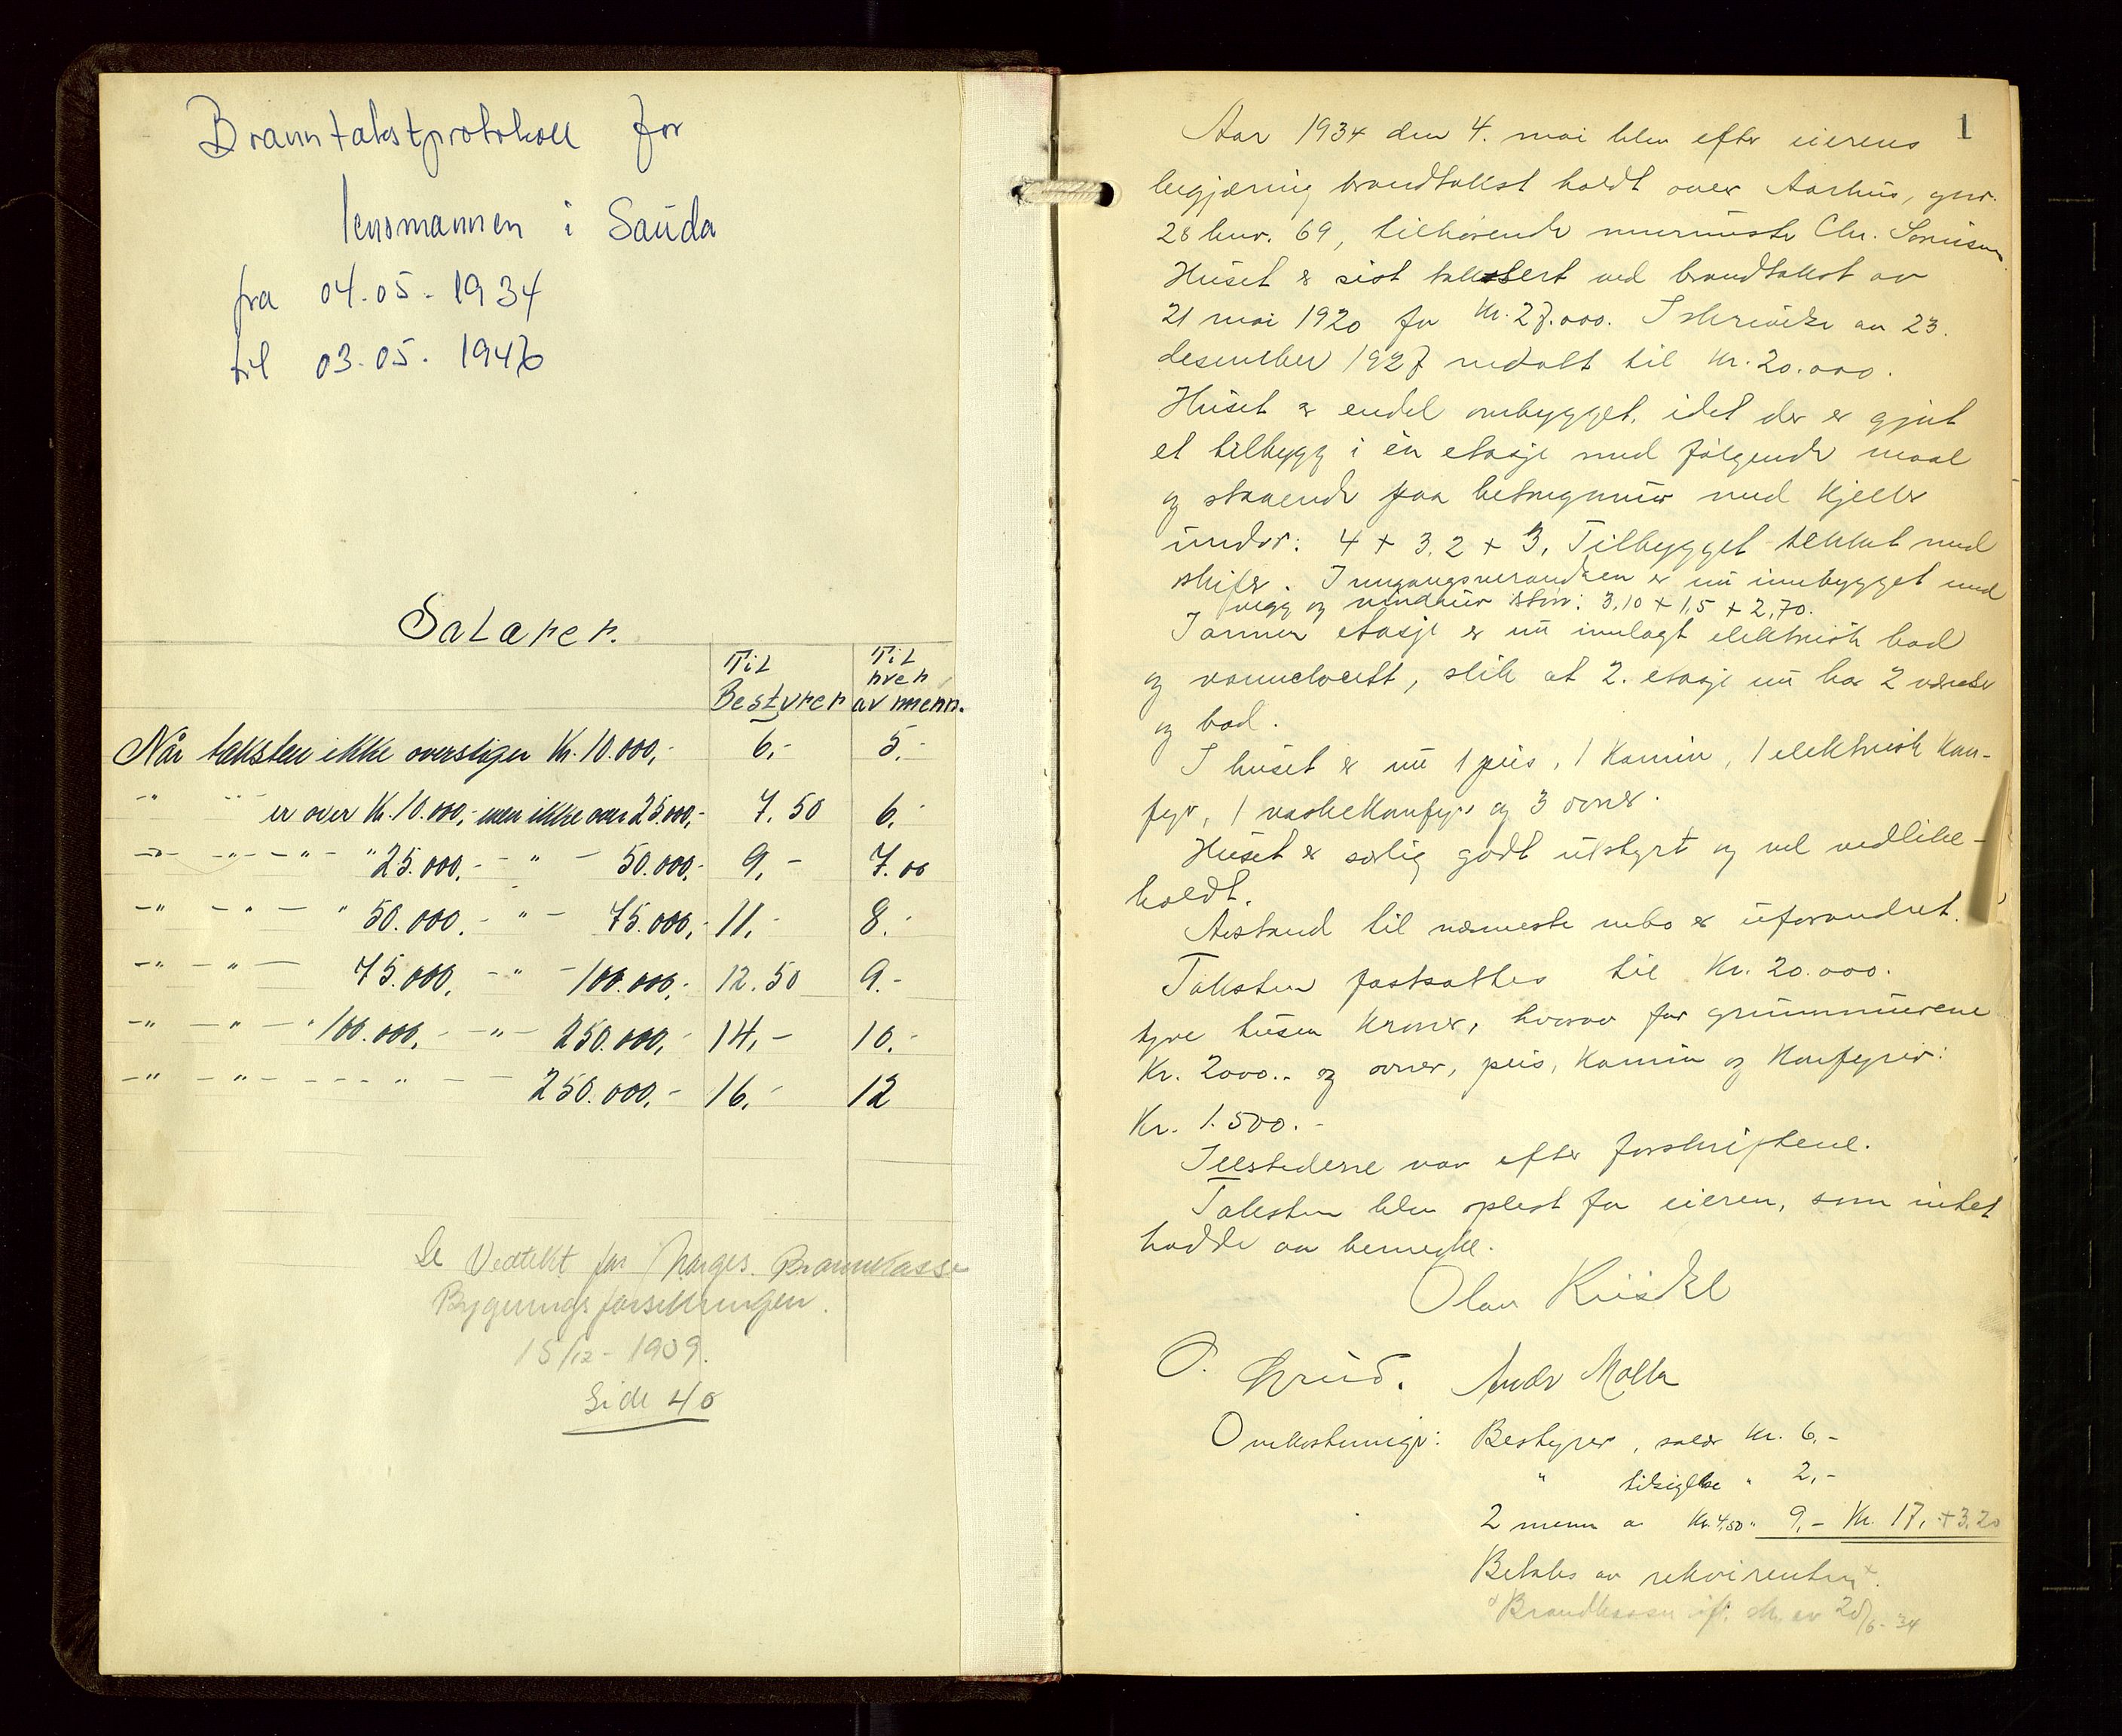 Branntakstprotokoll for
lensmannen i Sauda
fra 04.05-1934
til 03.05. 1946
Salarer.
Til Bestyrer
Til hver av menn.
Når taksten ikke overstiger Kr. 10.000,- 6,- 5.-
-"- -"- er over Kr. 10.000,- men ikke over 25.000,- 7.50 6.-
-"- -"- -"- " 25.000,- -"- 50.000,- 9,- 7.00
-"- -"- " 50.000,- -"- 75.000,- 11,- 8.-
-"- -"- 75.000,- -"- 100.000,- 12.50 9.-
-"- -"- " 100.000,- -"- 250.000,- 14,- 10.-
-"- -"- -"- 250.000.- 16.- 12
Se Vedtekt for Norges Brannkasse
Bygningsforsikringen.
15/12-1939.
Side 40
1
Aar 1934 den 4. mai blev efter eierens
begjæring brandtakst holdt over Aarhus, gnr.
28 bnr. 69, tilhørende murmester Chr.
Huset er sist takstert ved brandtakst av
21 mai 1920 for Kr. 27.000. I skrivelse av 23.
desember 1927 nedsatt til Kr. 20.000.
Huset er endel ombygget, idet der er gjort
et tilbygg i én etasje med følgende maal
og staaende paa betongmur med kjeller
under: 4 + 3,2 + 3. Tilbygget tekket med
skifer. Inngangsverandaen er nu innbygget med
vegg og vinduer størr: 3,10 + 1,5 + 2,70.
I annen etasje er nu innlagt elektrisk bad
og vannclosett, slik at 2. etasje nu har 2 værelser
og bad.
I huset er nu 1 peis, 1 kamin, 1 elektrisk kom-
fyr, 1 vaskekomfyr og 3 ovner.
Huset er særlig godt utstyrt og vel vedlike-
holdt.
Avstand til nærmeste nabo er uforandret.
Taksten fastsattes til Kr. 20.000.
tyve tusen kroner, hvorav for grunnmurene
Kr. 2000.- og ovner, peis, kamin og komfyrer:
Kr. 1.500.-
Ildstederne var efter forskriftene.
Taksten blev oplest for eieren, som intet
hadde aa bemerke.
Olav
O. Andr Molla
Omkostninger: Bestyrer, salær Kr. 6,-
" tilsigelse " 2,-
2 menn a Kr. 4,50 " 9,- Kr. 17, + 3,20
Betales av rekvirenten x.
x Brandkassen ifl. skr. av 20/6-34